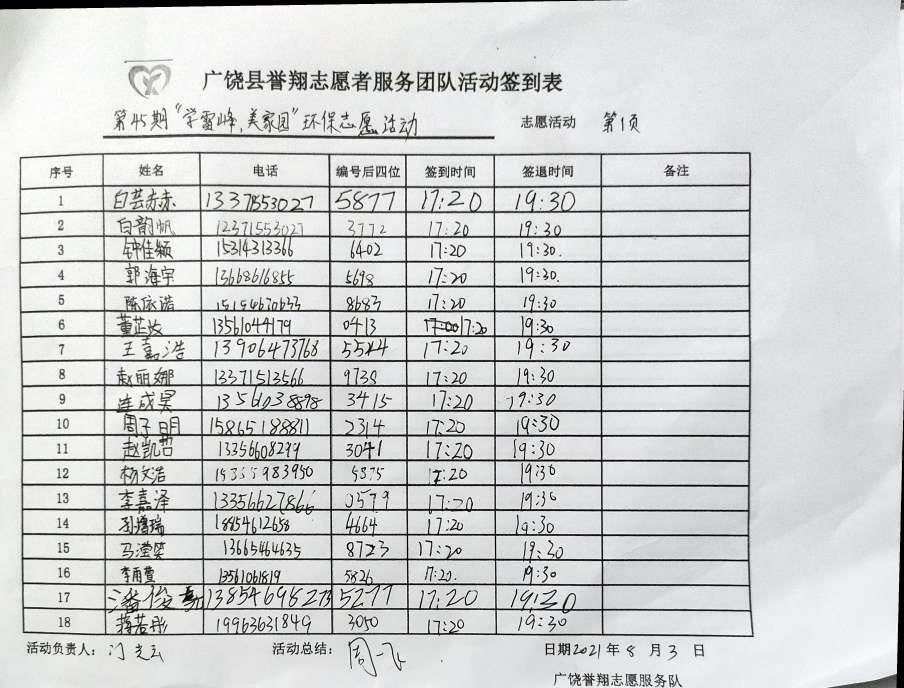 广饶县誉翔志愿者服务团队活动签到表
第45期“学雷峰,美家园”环保志愿活动 志愿活动 第1页
序号 姓名 电话 编号后四位 签到时间 签退时间 备注
1 白芸赤赤 5877 17:20 19:30
2 白韵帆 12371553027 3772 17:20 19:30
3 钟佳颖 15314313366 6402 17:20 19:30.
4 郭海宇 13668616855 5698 17:20 19:30.
5 陈依诺 8683 17:20 19:30
6 董芷 13561044179 0413 17:20 19:30
7 王嘉浩 13906473768 17:20 19:30
8 赵丽娜 13371513566 9738 17:20 19:30
9 连成昊 3415 17:20 19:30
10 周子明 15865188811 2314 17:20 19:30
11 赵凯茗 13356608299 3041 17:20 19:30
12 杨文浩 5875 17:20 19:30
13 李嘉泽 13356627866 0579 17:20 19:30
14 孙增瑞 18854612658 4664 17:20 19:30
15 马滢笑 13665464635 8723 17:20 19:30
16 李雨萱 13561061819 5826 17:20. 19:30
17 潘俊 5277 17:20 19:30
18 蒋若彤 19963631849 3050 17:20 19:30
活动负责人: 活动总结: 周一飞 日期2021年8月3日
广饶县誉翔志愿服务队